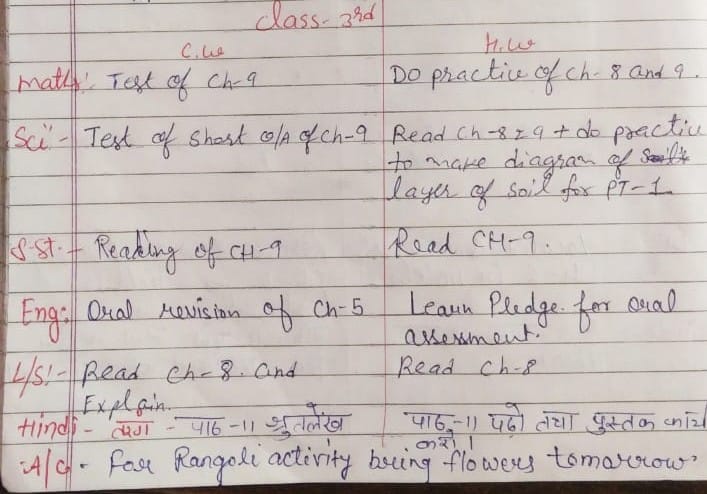 Class- 3rd
C.W H.W
Maths: Test of Ch-9 Do practice of ch- 8 and 9.
Sci:- Test of Short Q/A of Ch-9 Read Ch-8 & 9 + do practice
to make diagram of
layer of soil for PT-1
S.St.- Reading of CH-9 Read CH-9.
Eng: Oral revision of Ch-5 Learn Pledge for oral
assessment.
L/S:- Read Ch-8. and Read Ch-8
Explain.
Hindi- - पाठ -11 श्रुतलेख पाठ-11 पढो तथा पुस्तक कार्य
करो।
A/C- For Rangoli activity bring flowers tomorrow